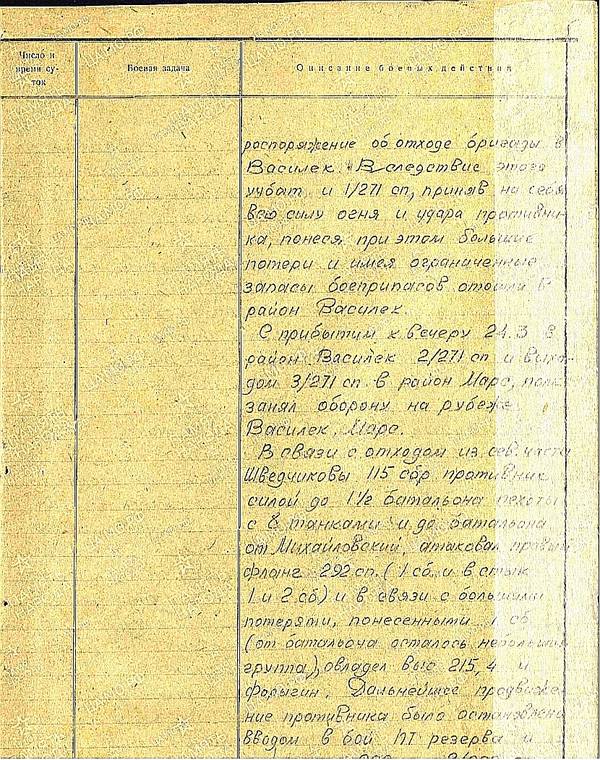 Число и
время су-
ток
Боевая задача
Описание боевых действий
распоряжение об отходе бригады в
Василек. Вследствие этого
учбат и 1/271 сп, приняв на себя
всю силу огня и удара противни-
ка, понеся при этом большие
потери и имея ограниченные
запасы боеприпасов отошли в
район Василек.
С прибытим к вечеру 24.3 в
район Василек 2/271 сп и выхо-
дом 3/271 сп в район Марс, полк
занял оборону на рубеже
Василек, Марс.
В связи с отходом из сев. части
Шведчиковы 115 сбр противник
силой до 1½ батальона пехоты
с 8 танками и до батальона
от Михайловский, атаковал правый
фланг 292 сп. (1 сб и в стык
1 и 2 сб) и в связи с большими
потеряти, понесенными 1 сб
(от батальона осталось небольшая
группа), овладел выс 215,4 и
Фолыгин. Дальнейшее продвиже-
ние противника было остановлено
вводом в бой ПТ резерва и